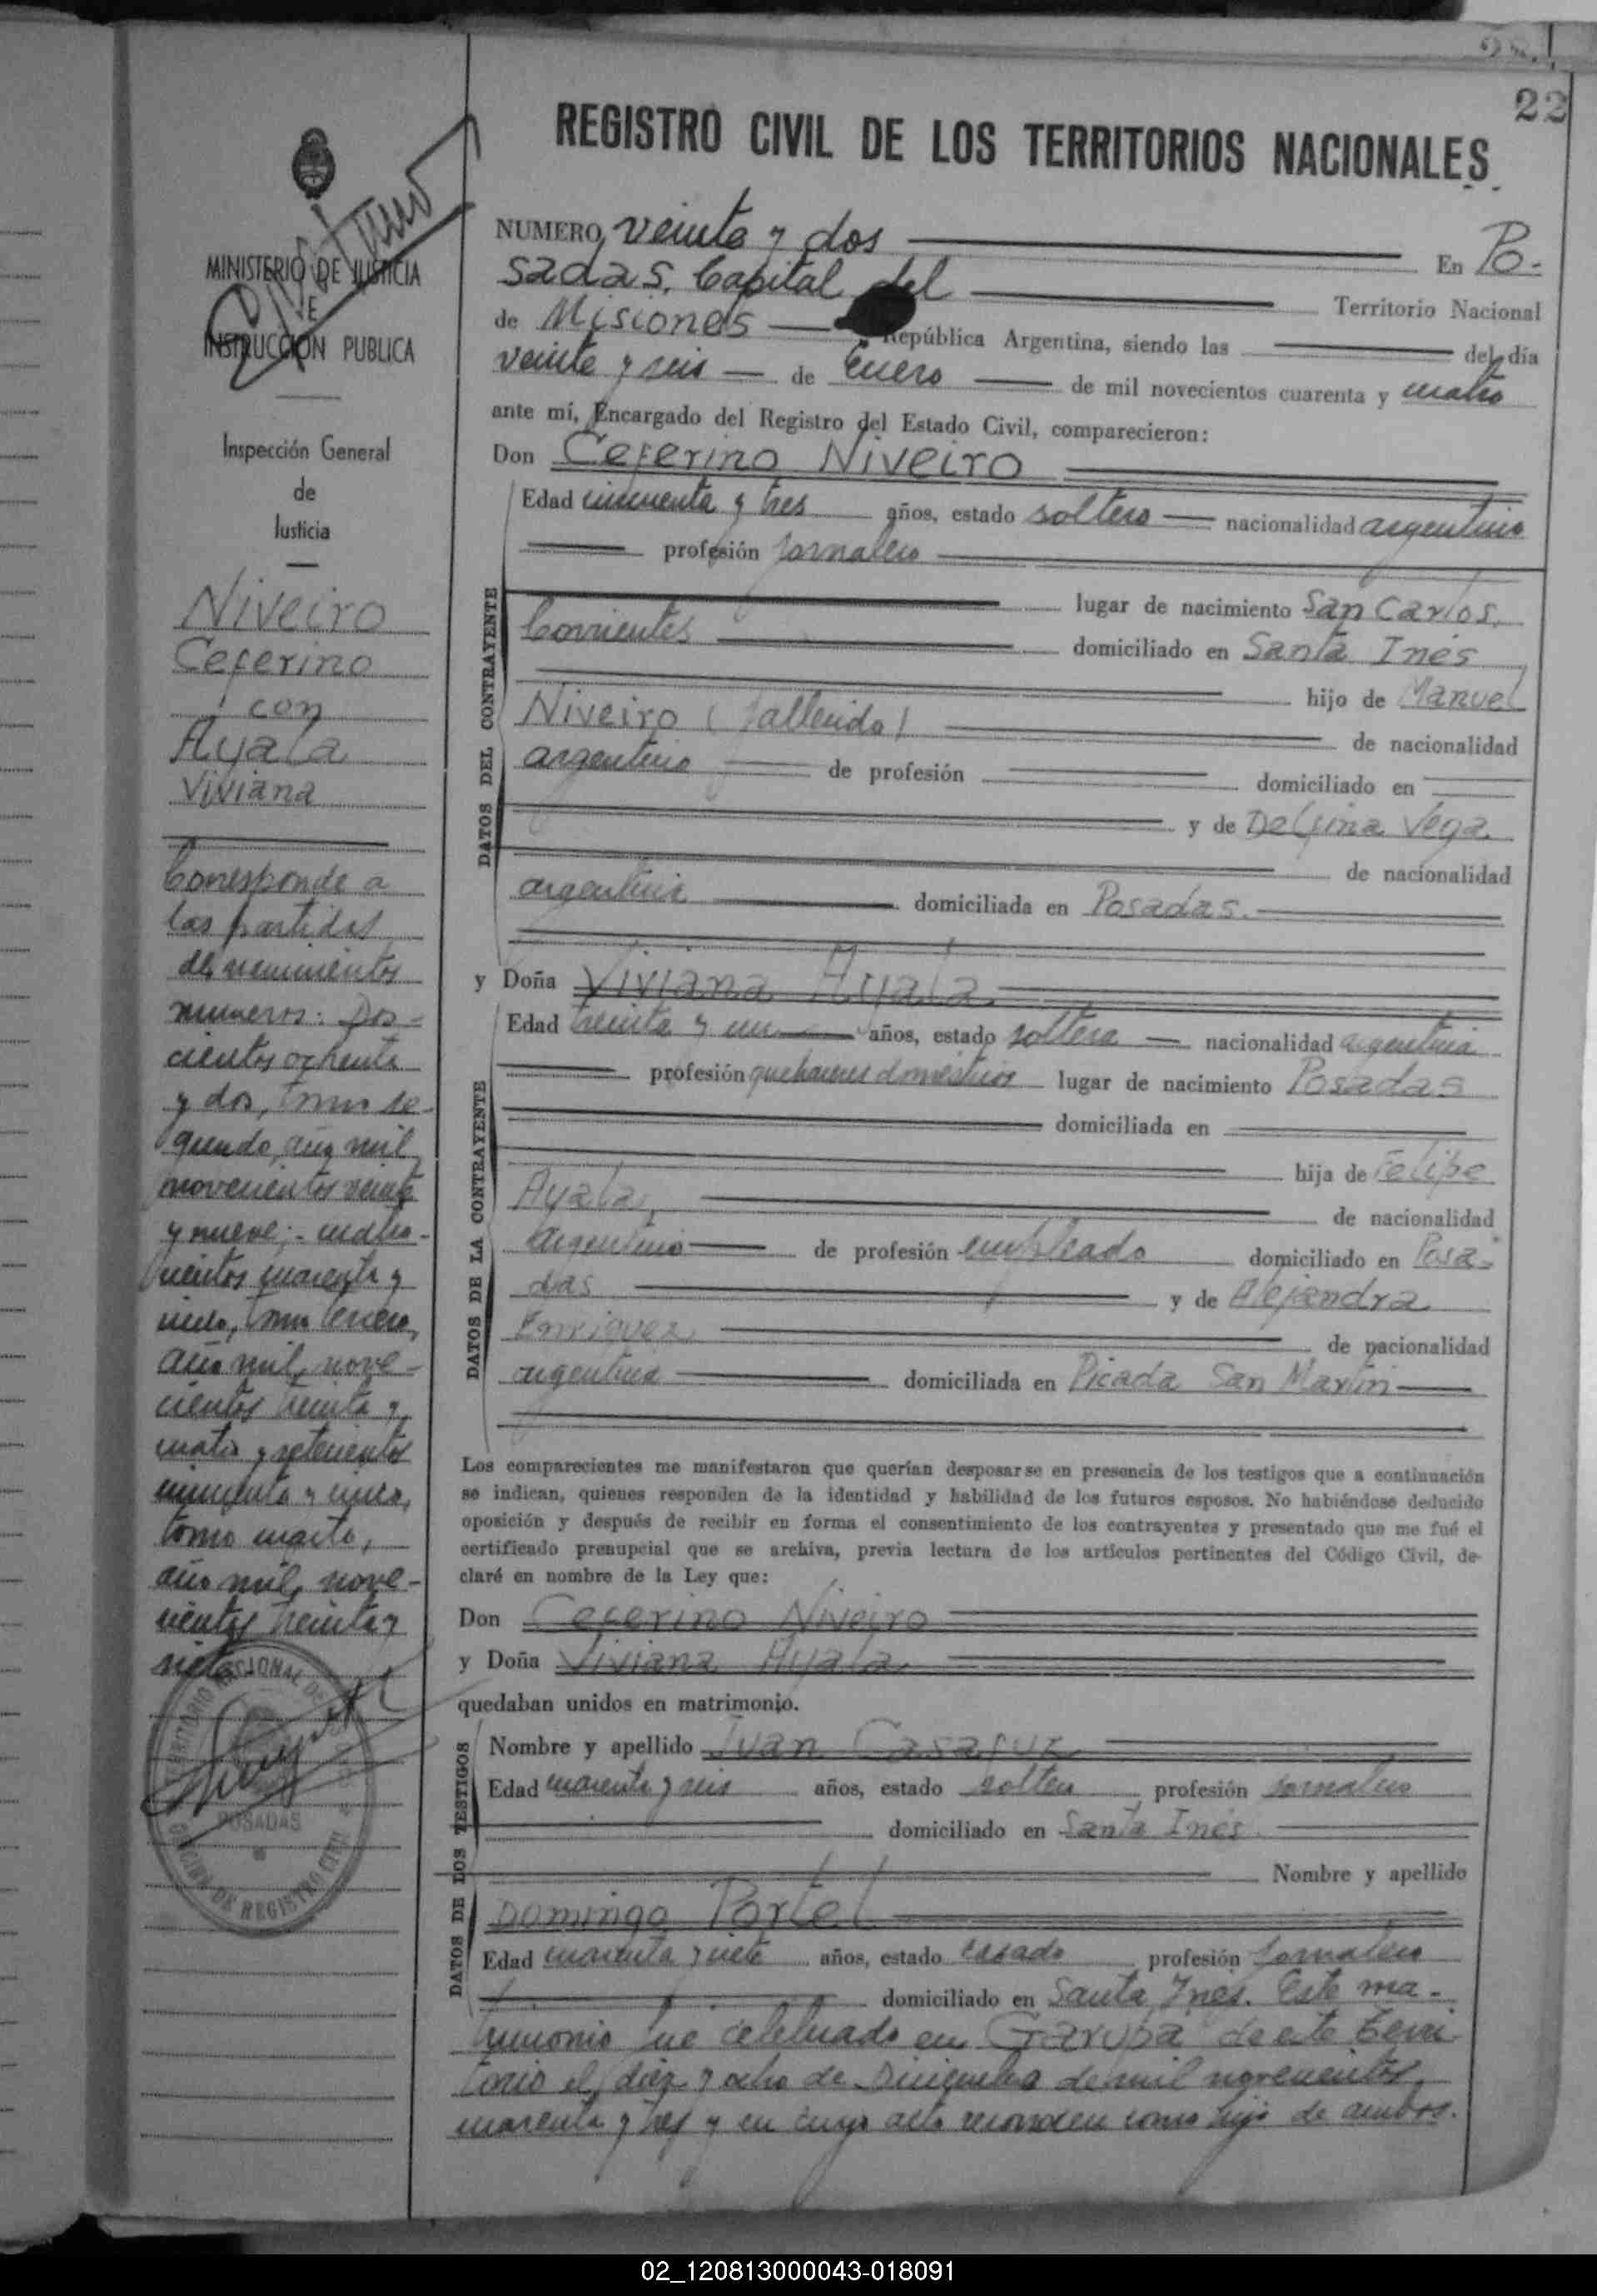 22
REGISTRO CIVIL DE LOS TERRITORIOS NACIONALES
NUMERO veinte y dos En Po-
sadas, Capital del Territorio Nacional
de Misiones República Argentina, siendo las del día
veinte y seis de Enero de mil novecientos cuarenta y cuatro
ante mí, Encargado del Registro del Estado Civil, comparecieron:
Don Ceferino Niveiro
Edad cincuenta y tres años, estado soltero nacionalidad argentino
profesión jornalero
lugar de nacimiento San Carlos,
Corrientes domiciliado en Santa Inés
hijo de Manuel
Niveiro (fallecido)
de nacionalidad
argentino de profesión domiciliado en
y de Delfina Vega
de nacionalidad
argentina domiciliada en Posadas.
DATOS DEL CONTRAYENTE
y Doña Viviana Ayala
Edad treinta y un años, estado soltera nacionalidad argentina
profesión quehaceres domésticos lugar de nacimiento Posadas
domiciliada en
hija de Felipe
Ayala, de nacionalidad
argentino de profesión empleado domiciliado en Posa-
das y de Alejandra
Enriquez de nacionalidad
argentina domiciliada en Picada San Martin
DATOS DE LA CONTRAYENTE
Los comparecientes me manifestaron que querían desposarse en presencia de los testigos que a continuación
se indican, quienes responden de la identidad y habilidad de los futuros esposos. No habiéndose deducido
oposición y después de recibir en forma el consentimiento de los contrayentes y presentado que me fué el
certificado prenupcial que se archiva, previa lectura de los artículos pertinentes del Código Civil, de-
claré en nombre de la Ley que:
Don Ceferino Niveiro
y Doña Viviana Ayala
quedaban unidos en matrimonio.
Nombre y apellido Juan
Edad cuarenta y seis años, estado soltero profesión jornalero
domiciliado en Santa Inés.
Nombre y apellido
Domingo Portel
Edad cuarenta y siete años, estado casado profesión jornalero
domiciliado en Santa Inés. Este ma-
trimonio fue celebrado en Garupá de este Terri
torio el diez y ocho de Diciembre de mil novecientos
cuarenta y tres y en cuyo acto reconocen como hijo de ambos.
DATOS DE LOS TESTIGOS
MINISTERIO DE JUSTICIA
E
INSTRUCCIÓN PUBLICA
Inspección General
de
Justicia
Niveiro
Ceferino
con
Ayala
Viviana
Corresponde a
las partidas
de nacimientos
numeros: Dos-
cientos ochenta
y dos, tomo se-
gundo, año mil
novecientos veinte
y nueve; - cuatro-
cientos cuarenta y
cinco, tomo tercero,
año mil, nove-
cientos treinta y
cuatro y setecientos
cincuenta y cinco,
tomo cuarto,
año mil, nove-
cientos treinta y
siete.
TERRITORIO NACIONAL DE
POSADAS
OFICINA DE REGISTRO CIVIL
02_120813000043-018091